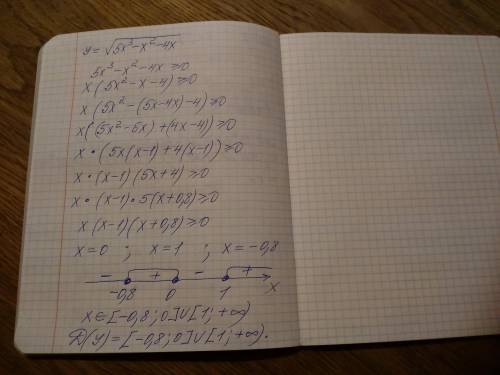 y = √5x³-x²-4x
5x³-x²-4x ≥0
x(5x²-x-4)≥0
x(5x²-(5x-4x)-4)≥0
x((5x²-5x)+(4x-4))≥0
x•(5x(x-1)+4(x-1))≥0
x•(x-1)(5x+4)≥0
x•(x-1)•5(x+0,8)≥0
x(x-1)(x+0,8)≥0
x=0 ; x=1 ; x=-0,8
- + - +
-0,8 0 1 x
x∈[-0,8;0]∪[1;+∞)
D(y)=[-0,8;0]∪[1;+∞).